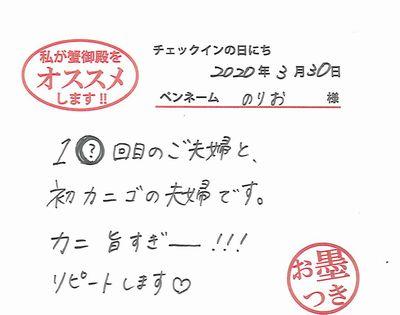 私が蟹御殿を
オススメ
します!!
チェックインの日にち
2020年3月30日
ペンネーム のりお 様
1?回目のご夫婦と、
初カニゴの夫婦です。
カニ 旨すぎー!!!
リピートします♡
お墨
つき